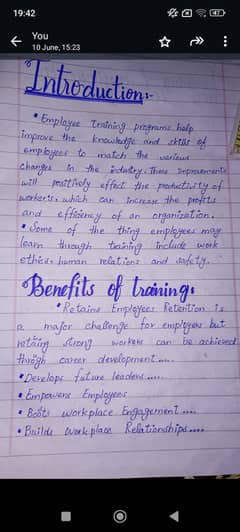 19:42
47
You
10 June, 15:23
Introduction:-
• Employee Training programs help
improve the knowledge and skills of
employees to match the various
changes in the industry. These improvements
will positively effect the productivity of
workers, which can increase the profits
and efficiency of an organization.
• Some of the thing employees may
learn through training include work
ethics, human relations and safety.
Benefits of training:
• Retains Employees Retention is
a major challenge for employers but
retaing strong workers can be achieved
through career development....
• Develops future leaders.....
• Empowers Employees
• Bosts workplace Engagement....
• Builds workplace Relationships....